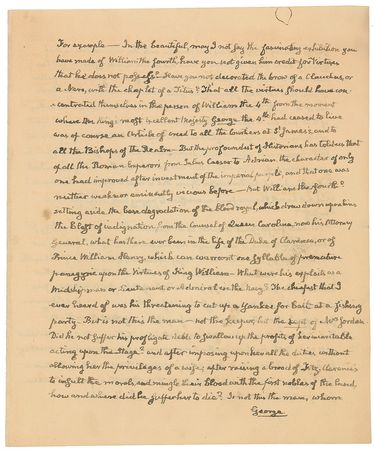 For example — In the beautiful, may I not say the fascinating exhibition you
have made of William the fourth, have you not given him credit for Virtues
that he does not possess? Have you not decorated the brow of a Claudius, or
a Nero, with the chaplet of a Titus? That all the virtues should have con-
centrated themselves in the person of William the 4th from the moment
where the King's most excellent Majesty George the 4th had ceased to live
was of course an Article of creed to all the Courtiers at St James's, and to
all the Bishops of the Realm — But the profoundest of Historians has told us that
of all the Roman Emperors from Julius Caesar to Adrian the character of only
one had improved after investment of the imperial purple, and that one was
neither weak nor eminently vicious before — And William the fourth?
setting aside the base degradation of the blood royal, which drew down upon him
the Blast of indignation from the Counsel of Queen Carolina, now his Attorney
General, what has there ever been in the life of the Duke of Clarence, or of
Prince William Henry, which can warrant one syllable of premature
panegyric upon the Virtues of King William — What were his exploits as a
Midshipman or Lieutenant or Admiral in the Navy? The cheapest that I
ever heard of was his threatening to cut up a Yankee for bait at a fishing
party — But is not this the man — not the keeper, but the kept of Mrs Jordan
Did he not suffer his profligate debts to swallow up the profits of her inimitable
acting upon the Stage? and after imposing upon her all the duties without
allowing her the privileges of a wife; after raising a brood of Fitz-Clarences
to insult the morals, and mingle their blood with the first nobles of the land,
how and where did he suffer her to die? Is not this the man, whom
George